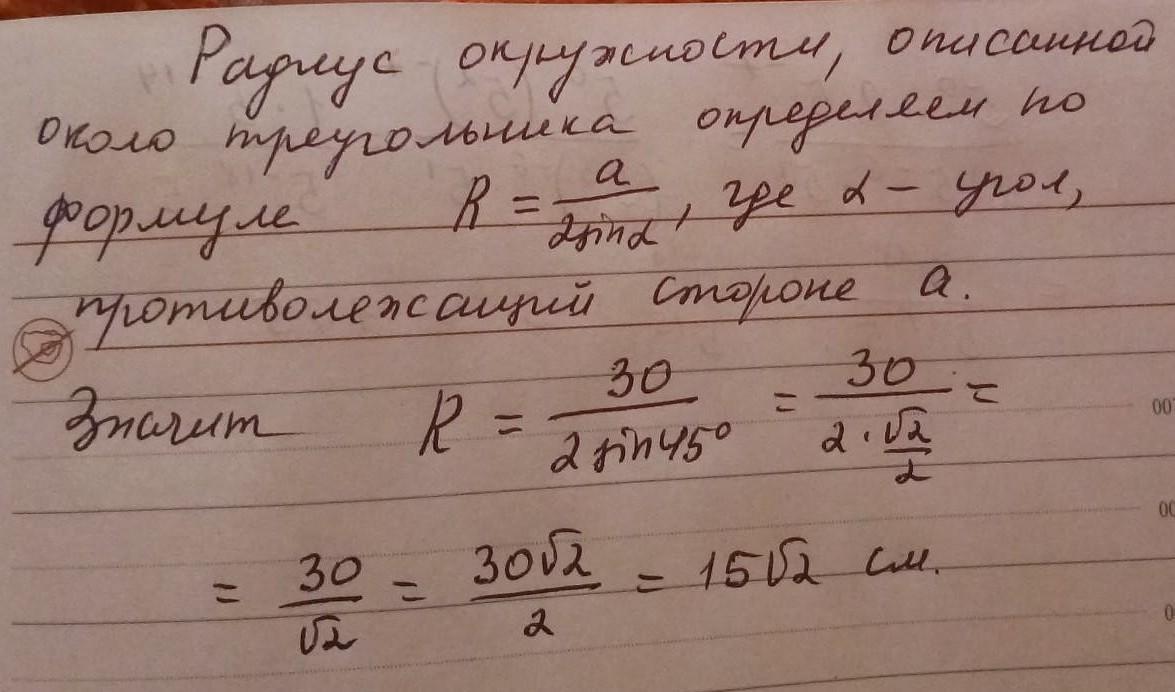 Радиус окружности, описанной
около треугольника определяем по
формуле R = a/(2sinα), где α – угол,
противолежащий стороне a.
Значит R = 30/(2 sin45°) = 30/(2·√2/2) =
= 30/√2 = 30√2/2 = 15√2 см.